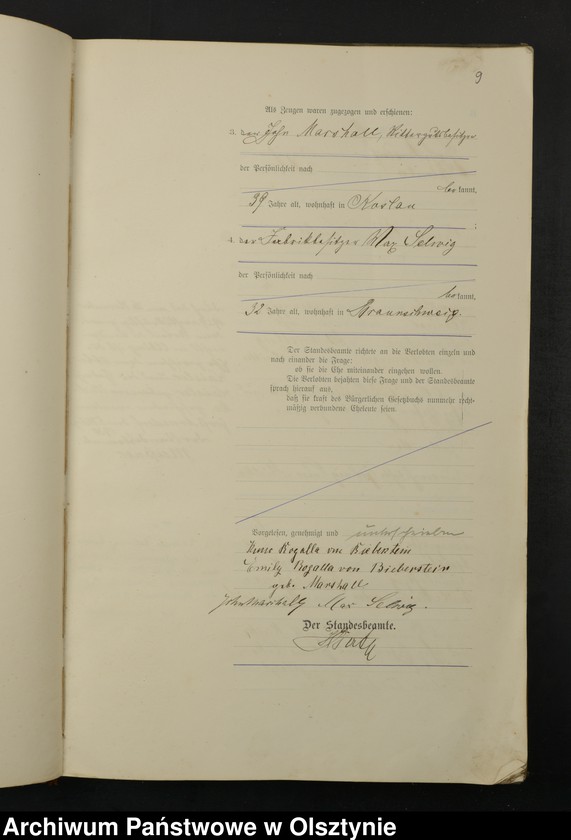 9
Als Zeugen waren zugezogen und erschienen:
3. der John Marshall, Rittergutsbesitzer
der Persönlichkeit nach
be kannt,
39 Jahre alt, wohnhaft in Koslau
;
4. der Fabrikbesitzer Max Selwig
der Persönlichkeit nach
be kannt,
32 Jahre alt, wohnhaft in Braunschweig.
Der Standesbeamte richtete an die Verlobten einzeln und
nach einander die Frage:
ob sie die Ehe miteinander eingehen wollen.
Die Verlobten bejahten diese Frage und der Standesbeamte
sprach hierauf aus,
daß sie kraft des Bürgerlichen Gesetzbuchs nunmehr recht-
mäßig verbundene Eheleute seien.
Vorgelesen, genehmigt und unterschrieben
Rogalla von Bieberstein
Emily Rogalla von Bieberstein
geb. Marshall
John Marshall Max Selwig.
Der Standesbeamte.
Archiwum Państwowe w Olsztynie